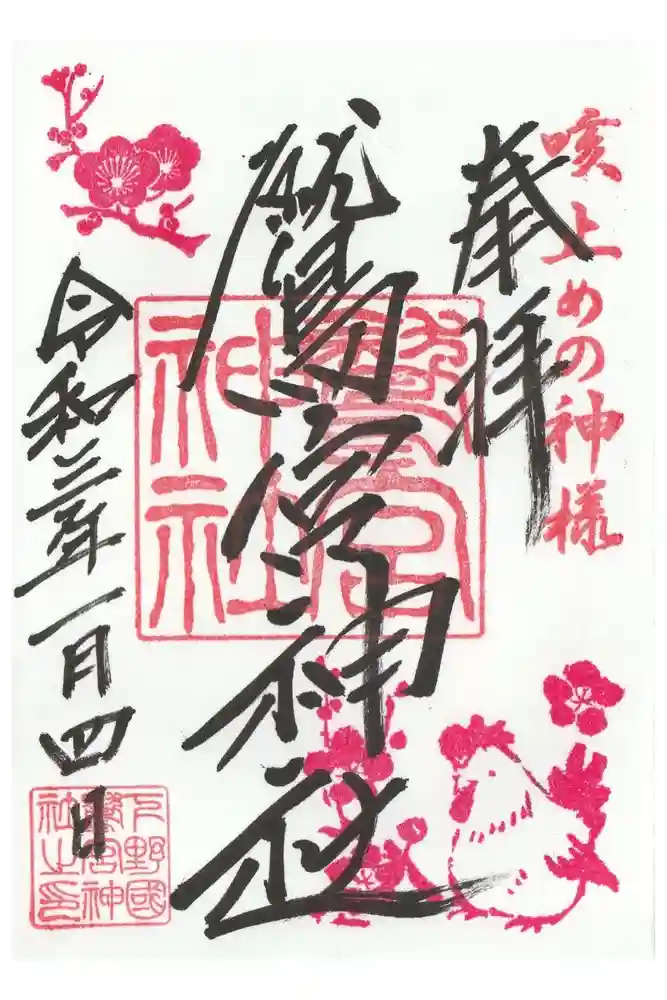 咳止めの神様
奉拝
鷲宮神社
鷲宮
神社
令和三年一月四日
下野國
鷲宮神
社之印